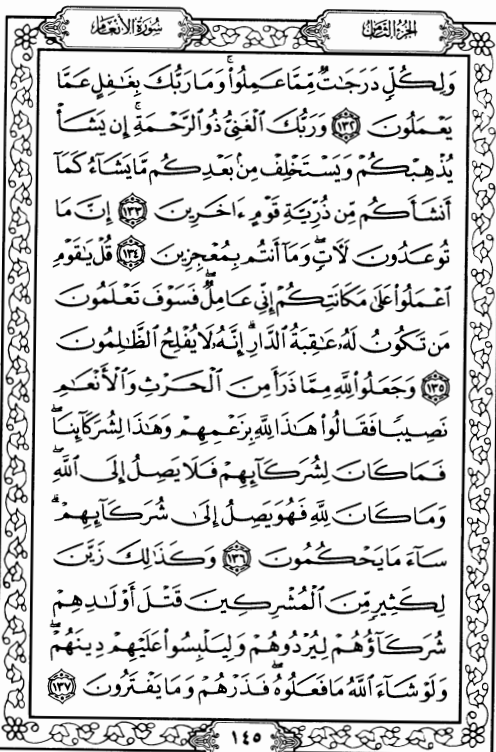 الجزء الثامن
سورة الأنعام
وَلِكُلٍّ دَرَجَٰتٌ مِّمَّا عَمِلُوا۟ ۚ وَمَا رَبُّكَ بِغَٰفِلٍ عَمَّا
يَعْمَلُونَ ١٣٢ وَرَبُّكَ الْغَنِىُّ ذُو الرَّحْمَةِ ۚ إِن يَشَأْ
يُذْهِبْكُمْ وَيَسْتَخْلِفْ مِنۢ بَعْدِكُم مَّا يَشَآءُ كَمَآ
أَنشَأَكُم مِّن ذُرِّيَّةِ قَوْمٍ ءَاخَرِينَ ١٣٣ إِنَّ مَا
تُوعَدُونَ لَءَاتٍ ۖ وَمَآ أَنتُم بِمُعْجِزِينَ ١٣٤ قُلْ يَٰقَوْمِ
اعْمَلُوا۟ عَلَىٰ مَكَانَتِكُمْ إِنِّى عَامِلٌ ۖ فَسَوْفَ تَعْلَمُونَ
مَن تَكُونُ لَهُۥ عَٰقِبَةُ الدَّارِ ۗ إِنَّهُۥ لَا يُفْلِحُ الظَّٰلِمُونَ
١٣٥ وَجَعَلُوا۟ لِلَّهِ مِمَّا ذَرَأَ مِنَ الْحَرْثِ وَالْأَنْعَٰمِ
نَصِيبًا فَقَالُوا۟ هَٰذَا لِلَّهِ بِزَعْمِهِمْ وَهَٰذَا لِشُرَكَآئِنَا ۖ
فَمَا كَانَ لِشُرَكَآئِهِمْ فَلَا يَصِلُ إِلَى اللَّهِ ۖ
وَمَا كَانَ لِلَّهِ فَهُوَ يَصِلُ إِلَىٰ شُرَكَآئِهِمْ ۗ
سَآءَ مَا يَحْكُمُونَ ١٣٦ وَكَذَٰلِكَ زَيَّنَ
لِكَثِيرٍ مِّنَ الْمُشْرِكِينَ قَتْلَ أَوْلَٰدِهِمْ
شُرَكَآؤُهُمْ لِيُرْدُوهُمْ وَلِيَلْبِسُوا۟ عَلَيْهِمْ دِينَهُمْ ۖ
وَلَوْ شَآءَ اللَّهُ مَا فَعَلُوهُ ۖ فَذَرْهُمْ وَمَا يَفْتَرُونَ ١٣٧
١٤٥